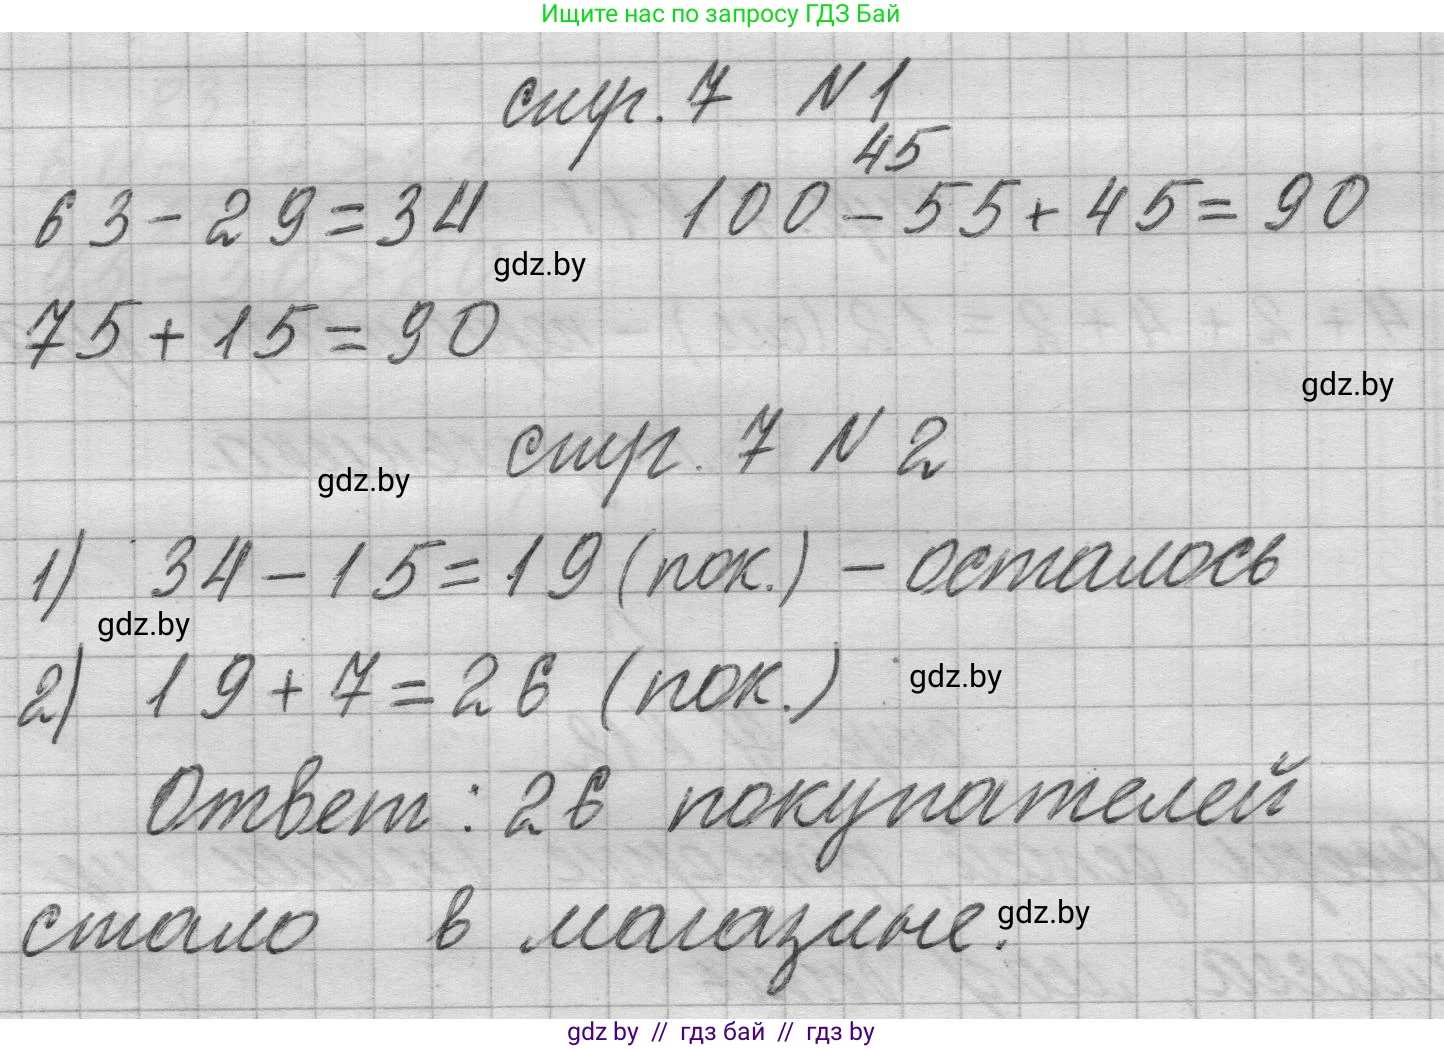 Ищите нас по запросу ГДЗ Бай
стр. 7 N 1
45
63 - 29 = 34 100 - 55 + 45 = 90
gdz.by
75 + 15 = 90
gdz.by
стр. 7 N 2
gdz.by
1) 34 - 15 = 19 (пок.) - осталось
gdz.by
2) 19 + 7 = 26 (пок.)
gdz.by
Ответ: 26 покупателей
стало в магазине.
gdz.by
gdz by // гдз бай // гдз by